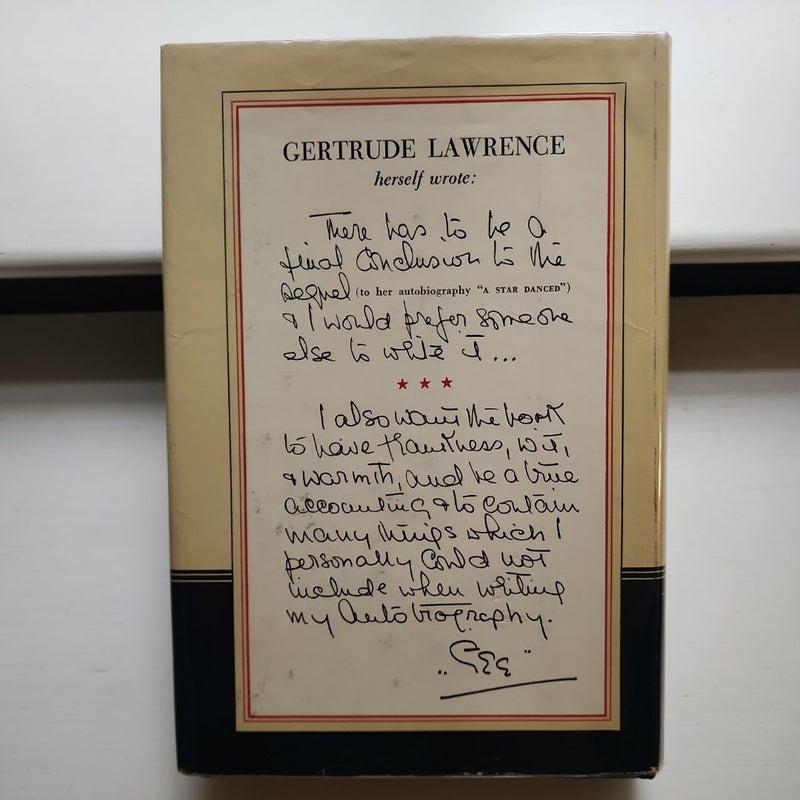 GERTRUDE LAWRENCE
herself wrote:
There has to be a
final conclusion to the
sequel (to her autobiography "A STAR DANCED")
& I would prefer someone
else to write it...
★ ★ ★
I also want the book
to have frankness, wit,
& warmth, and be a true
accounting & to contain
many things which I
personally could not
include when writing
my Autobiography.
"Gee"